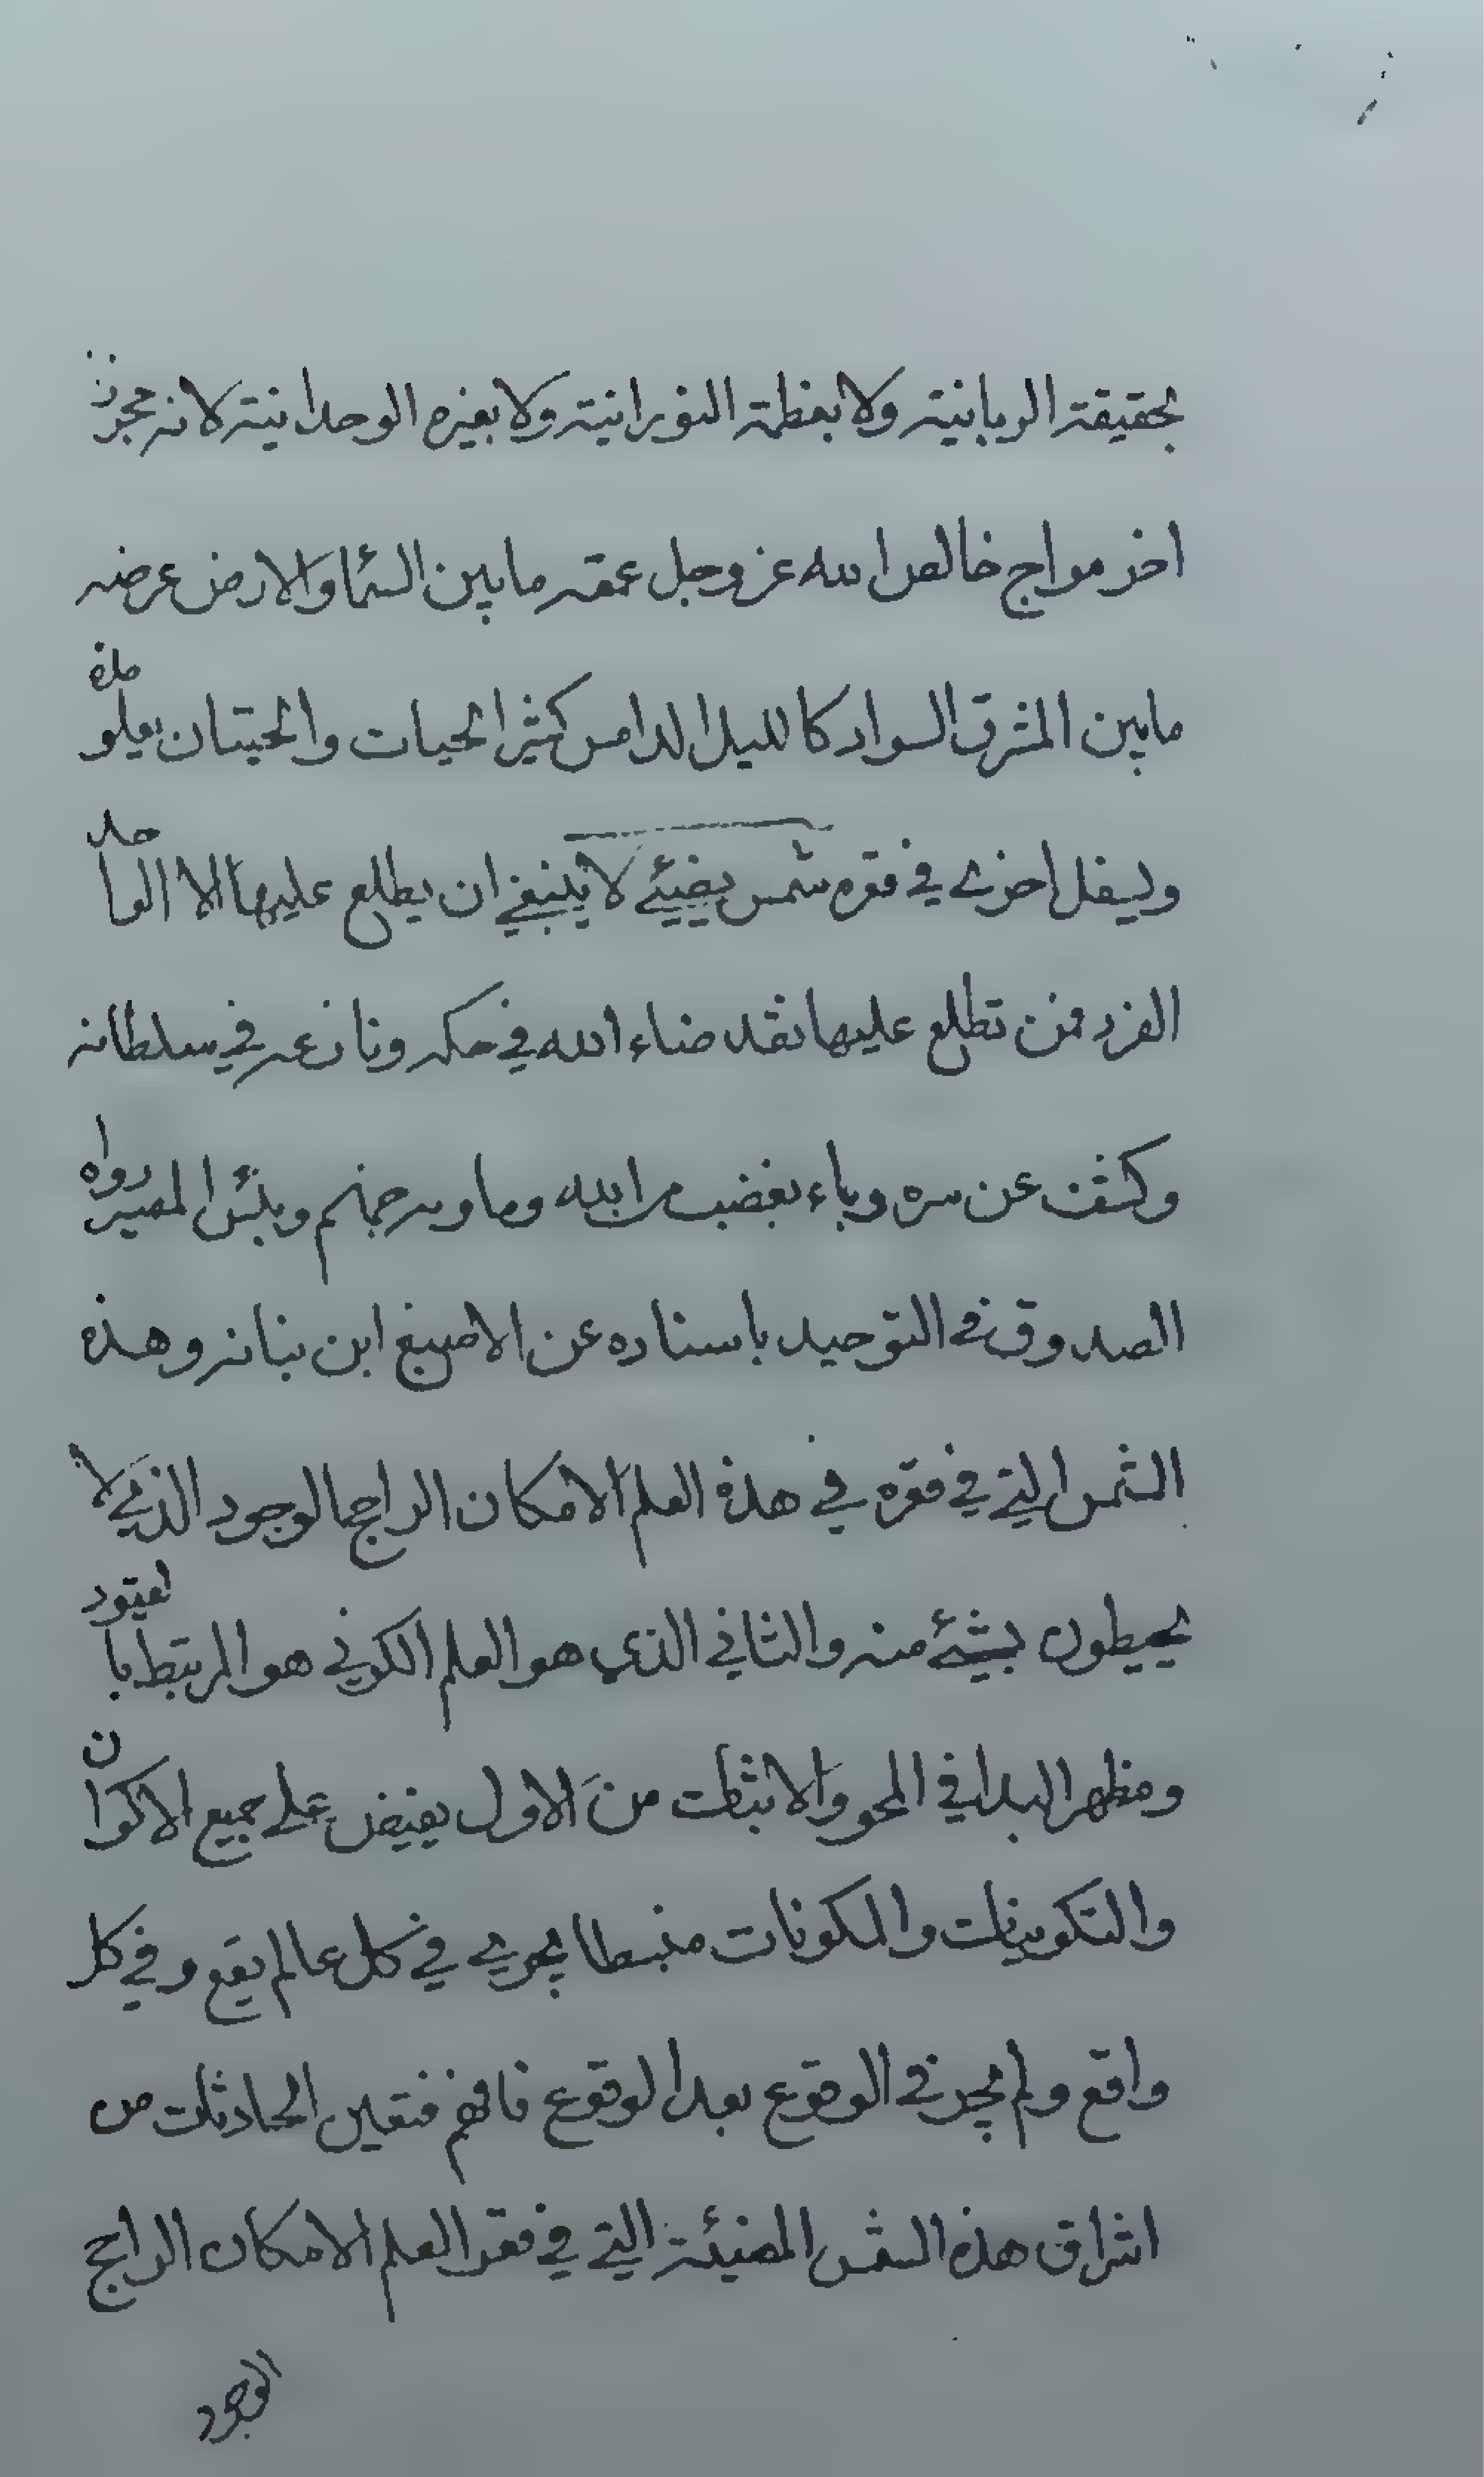 بحقيقة الربانية ولا بعظمة النورانية ولا بعزه الوحدانية لانه بحر ز
اخر مواج خالص الله عز وجل عمقه ما بين السمآ والارض عرضه
ما بين المشرق اسواد كالليل الدامس كثير الحيات والحيتان يعلو مرة
ويسفل اخرى في قعره شمس يضيئ لا ينبغي ان يطلع عليها الا الواحد
الفرد فمن تطلع عليها فقد ضاء الله في حكمه ونازعه في سلطانه
وكشف عن سره وباء بغضب من الله وماويه جهنم وبئس المصير رواه
الصدوق في التوحيد باسناده عن الاصبغ ابن نباته وهذه
الشمس التي في قعره في هذه العلم الامكان الراجح الوجود الذي لا
يحيطون بشيئ منه والثاني الذي هو العلم الكوني هو المرتبط بالقيود
ومظهر البدا في المحو والاثبات من الاول يفيض على جميع الاكوان
والتكوينات والمكونات منبسطا يجري في كل عالم يقع وفي كل
واقع ولم يجر في الوقوع بعد الوقوع فافهم فتعين الحادثات من
اشراق هذه الشمس المضيئة التي في قعر العلم الامكان الراجح
الوجود